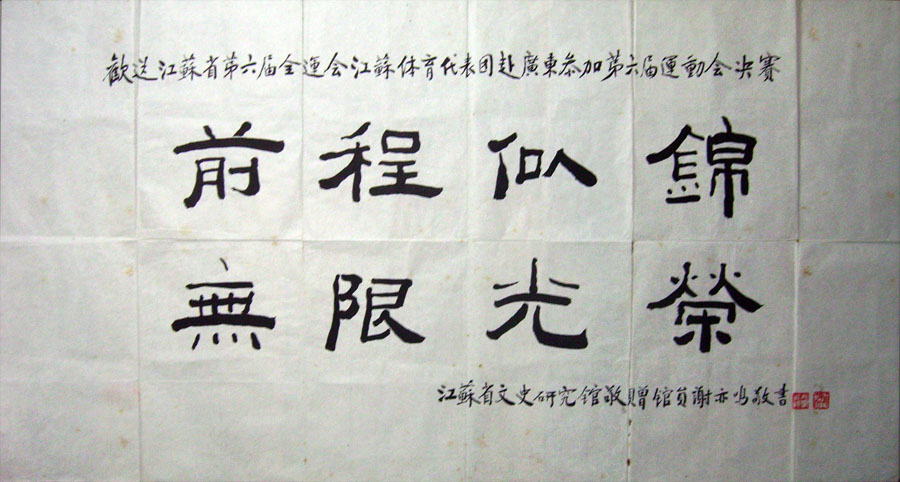 歡送江蘇省第六届全運会江蘇体育代表团赴廣東叅加第六届運動会决賽
前程似錦
無限光榮
江蘇省文史研究馆敬贈馆員謝亦鸣敬書